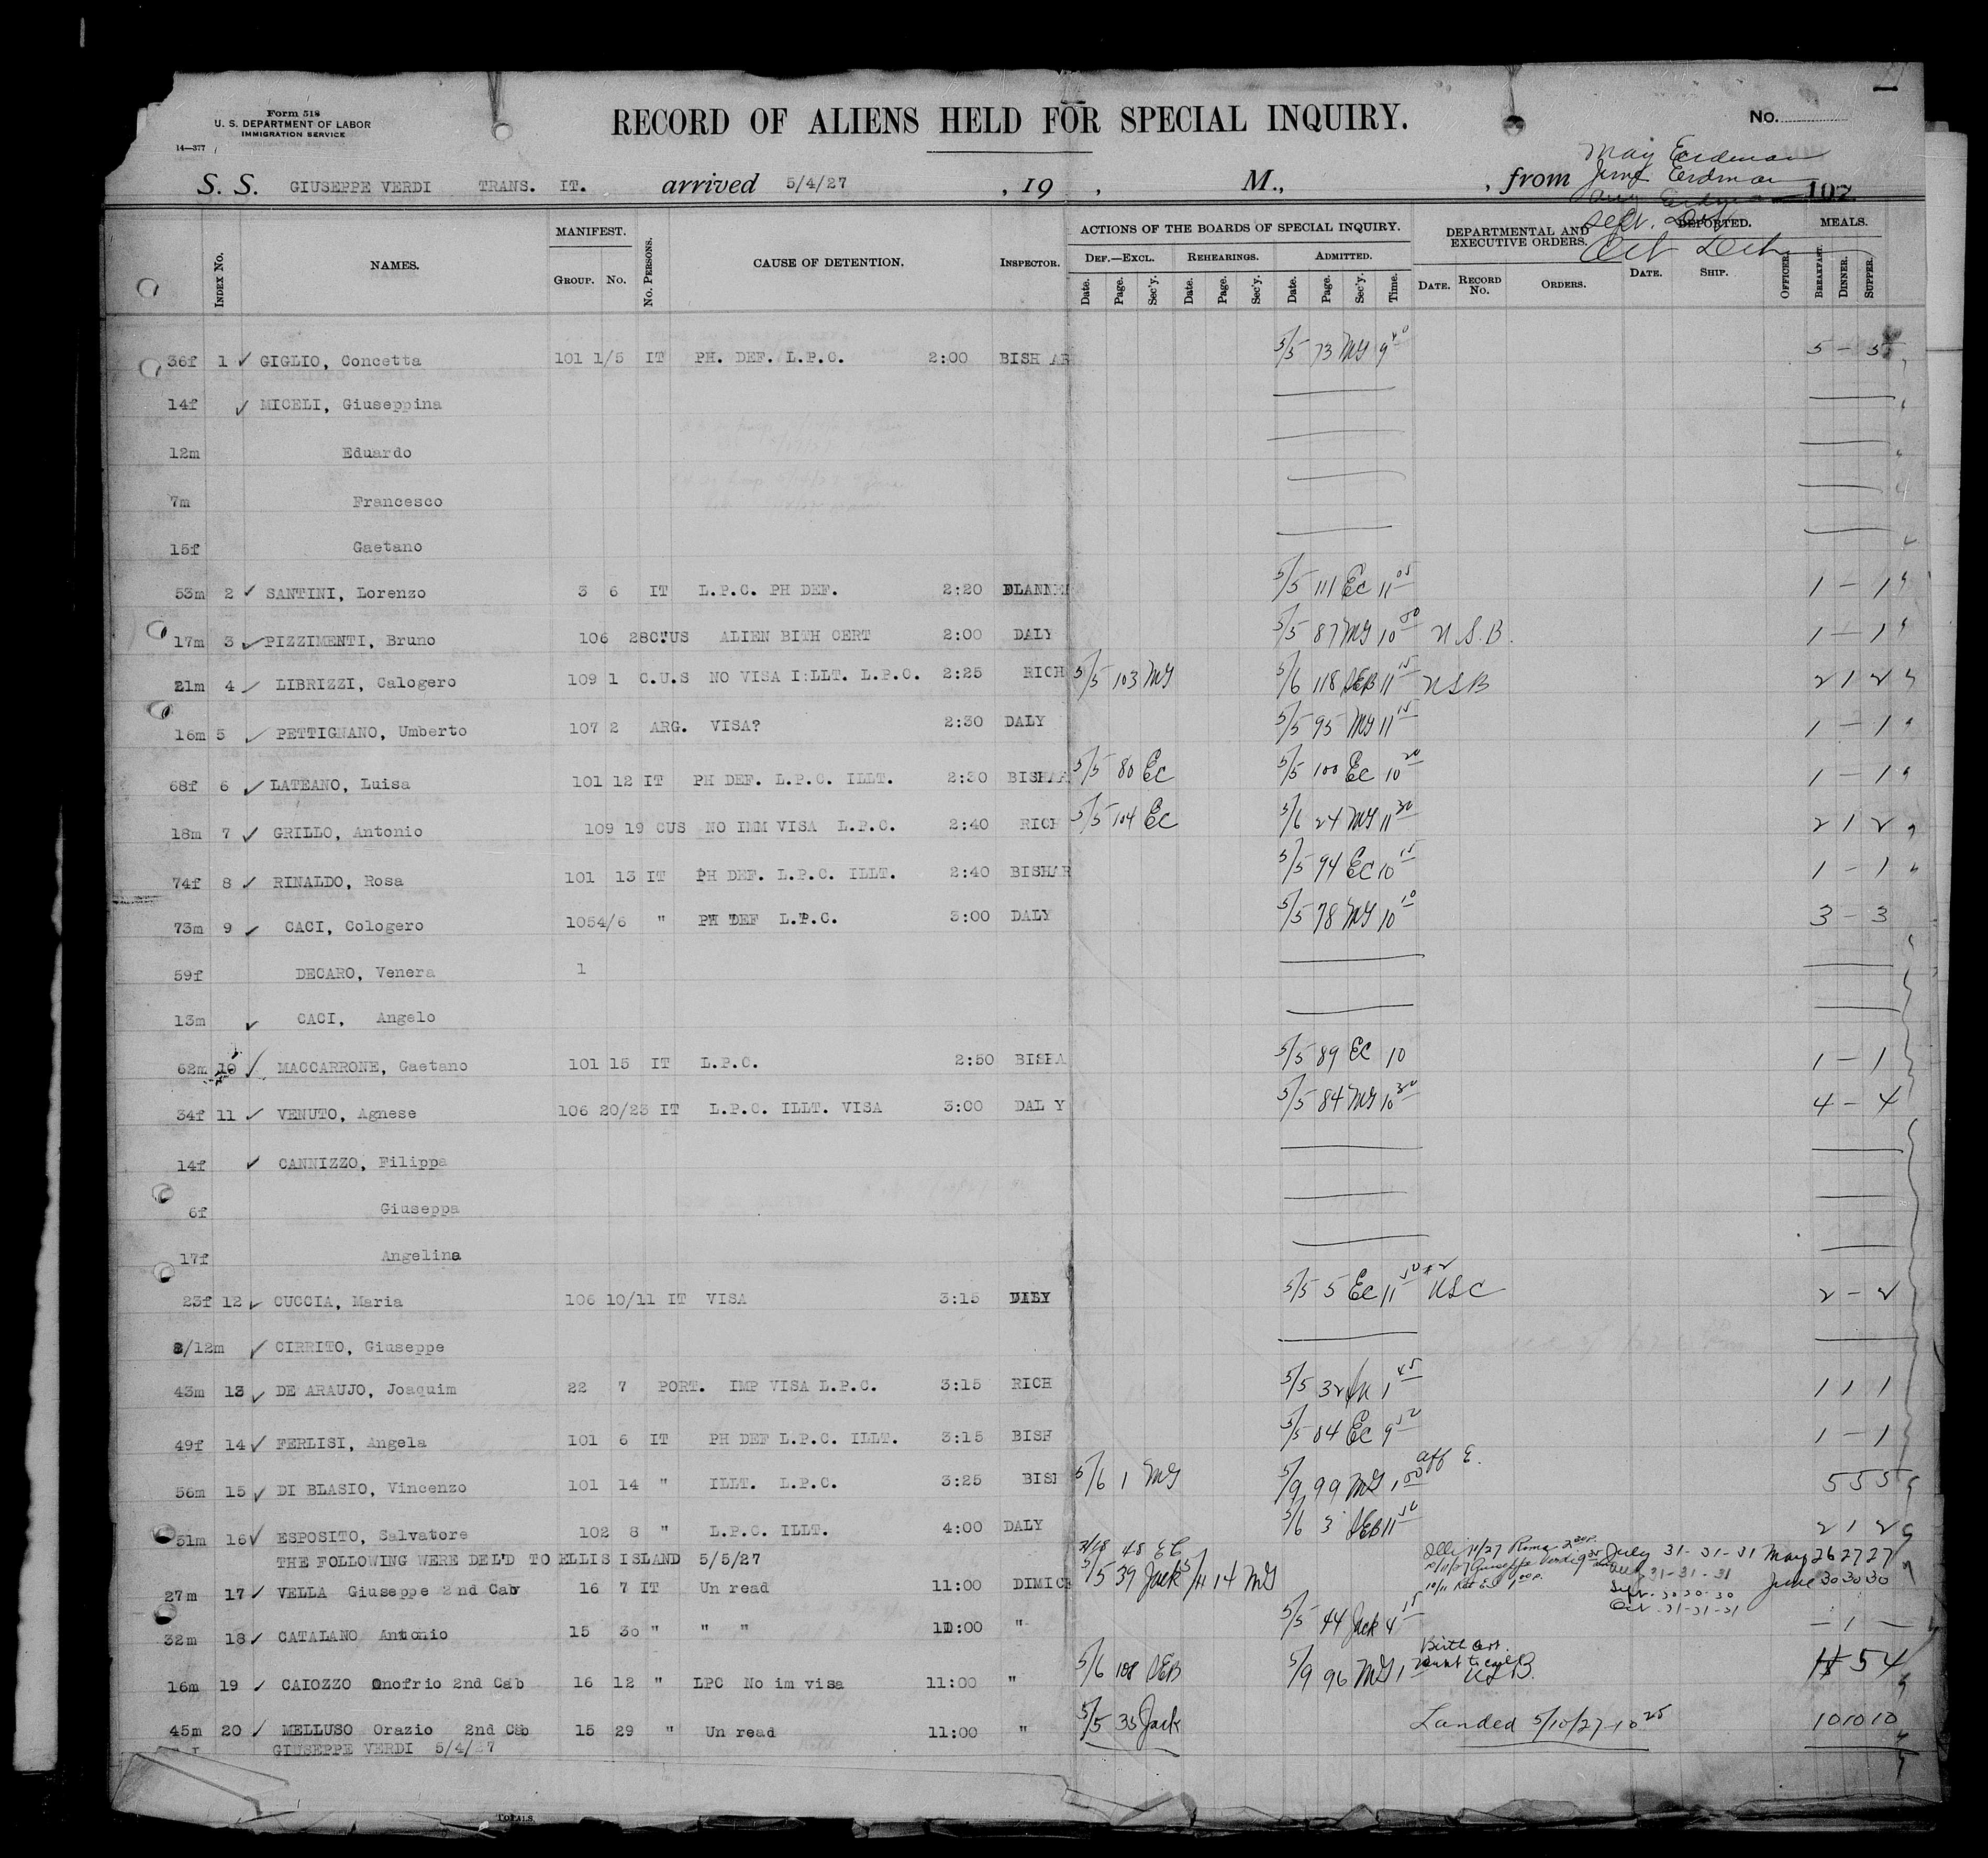 Form 518
U. S. DEPARTMENT OF LABOR
IMMIGRATION SERVICE
14—377
RECORD OF ALIENS HELD FOR SPECIAL INQUIRY.
No.
May Erdman
June Erdman
S. S. GIUSEPPE VERDI TRANS. IT. arrived 5/4/27 , 19 , M., , from
102
Sept.
Oct
INDEX NO. NAMES. MANIFEST. GROUP. NO. NO. PERSONS. CAUSE OF DETENTION. INSPECTOR. ACTIONS OF THE BOARDS OF SPECIAL INQUIRY. DEPARTMENTAL AND EXECUTIVE ORDERS. DEPORTED. MEALS.
DEF.—EXCL. REHEARINGS. ADMITTED.
Date. Page. Sec'y. Date. Page. Sec'y. Date. Page. Sec'y. Time. DATE. RECORD NO. ORDERS. DATE. SHIP. OFFICER. BREAKFAST. DINNER. SUPPER.
36f 1 ✓ GIGLIO, Concetta 101 1/5 IT PH. DEF. L.P.C. 2:00 BISH AR 5/5 73 MG 9 40 5 — 5
14f ✓ MICELI, Giuseppina
12m Eduardo
7m Francesco
15f Gaetano
53m 2 ✓ SANTINI, Lorenzo 3 6 IT L.P.C. PH DEF. 2:20 FLANNE 5/5 111 EC 11 05 1 — 1
17m 3 ✓ PIZZIMENTI, Bruno 106 28 C.US ALIEN BITH CERT 2:00 DALY 5/5 87 MG 10 50 U.S.B. 1 — 1
21m 4 ✓ LIBRIZZI, Calogero 109 1 C.U.S NO VISA I:LLT. L.P.C. 2:25 RICH 5/5 103 MG 5/6 118 SEB 11 15 USB 2 1 2
16m 5 ✓ PETTIGNANO, Umberto 107 2 ARG. VISA? 2:30 DALY 5/5 95 MG 11 15 1 — 1
68f 6 ✓ LATEANO, Luisa 101 12 IT PH DEF. L.P.C. ILLT. 2:30 BISHAR 5/5 80 EC 5/5 100 EC 10 20 1 — 1
18m 7 ✓ GRILLO, Antonio 109 19 CUS NO IMM VISA L.P.C. 2:40 RICH 5/5 104 EC 5/6 24 MG 11 30 2 1 2
74f 8 ✓ RINALDO, Rosa 101 13 IT PH DEF. L.P.C. ILLT. 2:40 BISHAR 5/5 94 EC 10 15 1 — 1
73m 9 ✓ CACI, Cologero 105 4/6 " PH DEF L.P.C. 3:00 DALY 5/5 78 MG 10 10 3 — 3
59f DECARO, Venera 1
13m ✓ CACI, Angelo
62m 10 ✓ MACCARRONE, Gaetano 101 15 IT L.P.C. 2:50 BISHA 5/5 89 EC 10 1 — 1
34f 11 ✓ VENUTO, Agnese 106 20/23 IT L.P.C. ILLT. VISA 3:00 DAL Y 5/5 84 MG 10 30 4 — 4
14f ✓ CANNIZZO, Filippa
6f Giuseppa
17f Angelina
23f 12 ✓ CUCCIA, Maria 106 10/11 IT VISA 3:15 DALY 5/5 5 EC 11 50 USC 2 — 2
8/12m ✓ CIRRITO, Giuseppe
43m 13 ✓ DE ARAUJO, Joaquim 22 7 PORT. IMP VISA L.P.C. 3:15 RICH 5/5 32 1 45 1 1 1
49f 14 ✓ FERLISI, Angela 101 6 IT PH DEF L.P.C. ILLT. 3:15 BISH 5/5 84 EC 9 50 1 — 1
56m 15 ✓ DI BLASIO, Vincenzo 101 14 " ILLT. L.P.C. 3:25 BISH 5/6 1 MG 5/9 99 MG 1 00 aff E. 5 5 5
51m 16 ✓ ESPOSITO, Salvatore 102 8 " L.P.C. ILLT. 4:00 DALY 5/6 3 SEB 11 50 2 1 2
THE FOLLOWING WERE DEL'D TO ELLIS ISLAND 5/5/27
27m 17 ✓ VELLA Giuseppe 2nd Cab 16 7 IT Un read 11:00 DIMICH 5/5 39 Jack 5/11 14 MG July 31-31-31 May 26 27 27
Aug 31-31-31 June 30 30 30
Sept. 30 30-30
Oct. 31-31-31
32m 18 ✓ CATALANO Antonio 15 30 " " " 11:00 " 5/5 44 Jack 4 15 — 1 —
16m 19 ✓ CAIOZZO Onofrio 2nd Cab 16 12 " LPC No im visa 11:00 " 5/6 108 SEB 5/9 96 MG 1 Birth Cert. USB. 5 4
45m 20 ✓ MELLUSO Orazio 2nd Cab 15 29 " Un read 11:00 " 5/5 33 Jack Landed 5/10/27-10 25 10 10 10
GIUSEPPE VERDI 5/4/27
TOTALS.